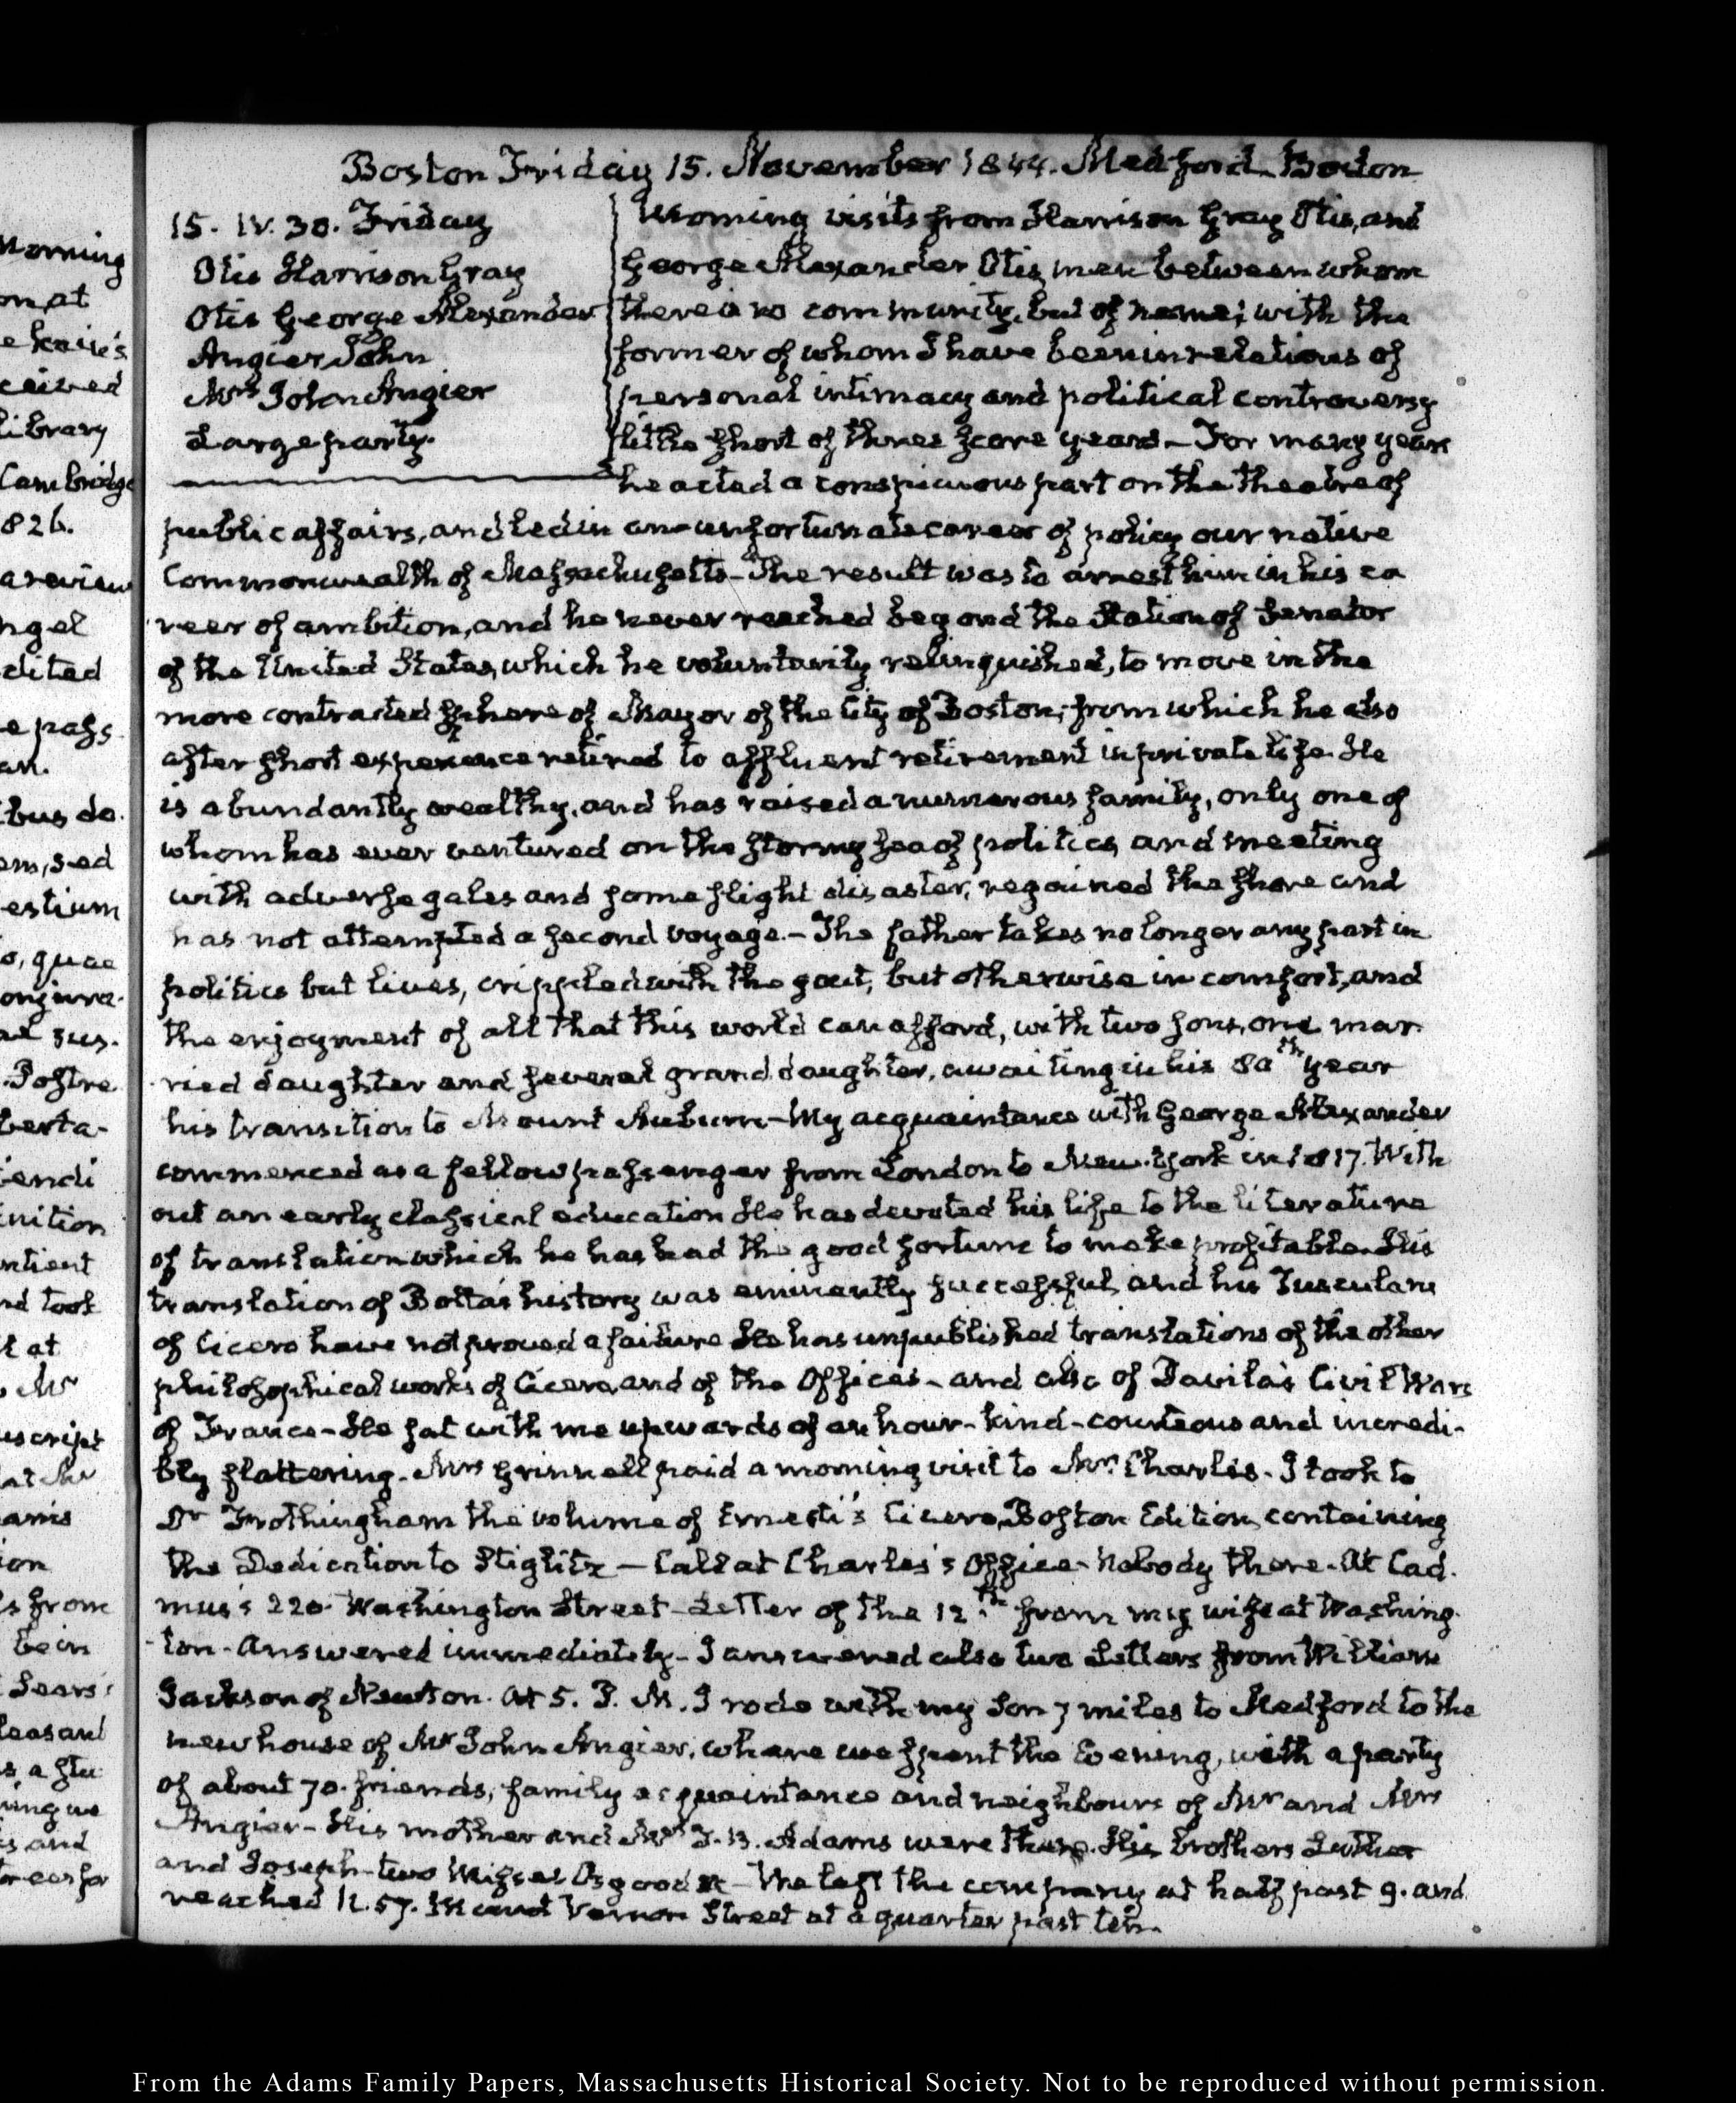 Morning
on, at
ceived
Library
Cambridge
826.
a review
ngel
dited
e pass
an.
bus de
em, sed
estium
o, quae
al sus.
Postre
berta-
tendi
nition
ntient
nd took
t at
Mr
uscript
at Mr
ion
s from
be in
Sears's
leasant
ning we
s and
Boston Friday 15. November 1844. Medford. Boston
15. IV. 30. Friday
Otis Harrison Gray
Otis George Alexander
Angier John
Mrs John Angier
Large party.
Morning visits from Harrison Gray Otis, and
George Alexander Otis, men between whom
there is no community, but of name; with the
former of whom I have been in relations of
personal intimacy and political controversy
little short of three score years— For many years
he acted a conspicuous part on the theatre of
public affairs, and led in an unfortunate career of policy our native
Commonwealth of Massachusetts— The result was to arrest him in his ca
reer of ambition, and he never reached beyond the Station of Senator
of the United States, which he voluntarily relinquished, to move in the
more contracted sphere of Mayor of the City of Boston; from which he also
after short experience retired to affluent retirement in private life. He
is abundantly wealthy, and has raised a numerous family, only one of
whom has ever ventured on the stormy sea of politics, and meeting
with adverse gales and some slight disaster, regained the shore and
has not attempted a second voyage.— The father takes no longer any part in
politics but lives, crippled with the gout, but otherwise in comfort, and
the enjoyment of all that this world can afford, with two sons, one mar
ried daughter and several grand daughter, awaiting in his 80th year
his transition to Mount Auburn— My acquaintance with George Alexander
commenced as a fellow passenger from London to New-York in 1817. With
out an early classical education He has devoted his life to the literature
of translation which he has had the good fortune to make profitable. His
translation of Botta's history was eminently successful, and his Tusculans
of Cicero have not proved a failure He has unpublished translations of the other
philosophical works of Cicero, and of the Offices— and also of Davila's Civil Wars
of France— He sat with me upwards of an hour— kind— courteous and incredi-
bly flattering. Mrs Grinnell paid a morning visit to Mrs Charles. I took to
Dr Frothingham the volume of Ernesti's Cicero, Boston Edition, containing
the Dedication to Stiglitz— Call at Charles's Office— Nobody there. At Cad.
mus's 220. Washington Street— Letter of the 12.th from my wife at Washing
-ton— Answered immediately— I answered also two Letters from William
Jackson of Newton. At 5. P. M. I rode with my Son 7 miles to Medford to the
new house of Mr John Angier, where we spent the Evening, with a party
of about 70. friends, family acquaintance and neighbours of Mr and Mrs
Angier— His mother and Mrs T. B. Adams were there. His brothers Luther
and Joseph— two Misses Osgood &c— We left the company at half past 9. and
reached N. 57. Mount Vernon Street at a quarter past ten.
From the Adams Family Papers, Massachusetts Historical Society. Not to be reproduced without permission.